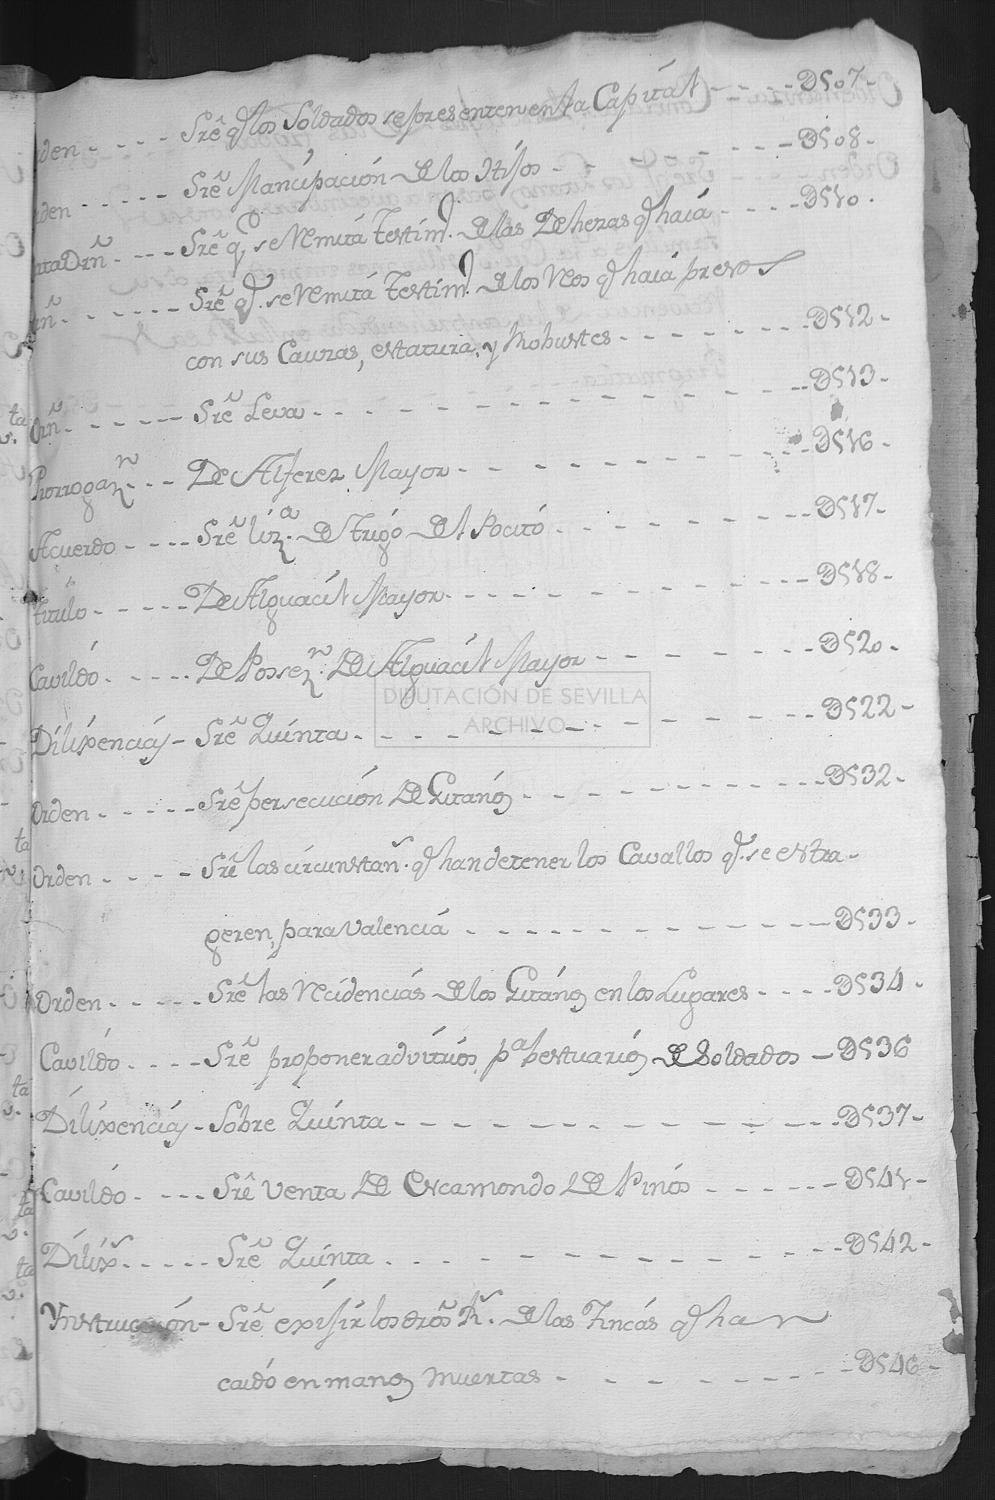 Orden - - - - Sre̅ q̅ los Soldados se presenten en ɬa Capitál - - - - D507-
Orden - - - - - Sre̅ Mancipación de los Hijos - - - - - D508-
Cartta Orn̅ - - - - Sre̅ q̅ se Remitá Testim.º de las Dehesas q̅ haiá - - - - D510.
Orn̅ - - - - - - Sre̅ q̅ se Remitá Testim.º de los Reos q̅ haiá presos
con sus Causas, estatura, y Robustes - - - - - - D512-
Orn̅ - - - - - - Sre̅ Leva - - - - - - - - - D513-
Prorrogaz.n - - - De Alferez Mayor - - - - - - - - - D516-
Acuerdo - - - - Sre̅ liz.a de Trigo del Pocitó - - - - - - D517-
Titulo - - - - - De Alguacil Mayor - - - - - - - - D518-
Cavildó - - - - - De Possez.n de Alguacil Mayor - - - - - - D520-
DIPUTACIÓN DE SEVILLA
ARCHIVO
Dilixencias - Sre̅ Quinta - - - - - - - - - - D522-
Orden - - - - - Sre̅ persecución de Gitános - - - - - - - - - D532-
Orden - - - - - Sre̅ las circunstan.s q̅ han de tener los Cavallos q̅ se extra-
geren, para Valenciá - - - - - - - - - - - D533-
Orden - - - - - Sre̅ las Recidenciás de los Gitános en los Lugares - - - - D534-
Cavildo - - - - Sre̅ proponer advitrios, p.a vestuarios de Soldados - D536
Dilixenciás - Sobre Quinta - - - - - - - - - - - - D537-
Cavildo - - - - Sre̅ Venta de Escamondo de Pinós - - - - - - D541-
Dilix.s - - - - - Sre̅ Quinta - - - - - - - - - - D542-
Ynstrucción - Sre̅ exijir los dros̅ R.s de las Fincás q̅ han
caidó en manos muertas - - - - - - - - - D546-